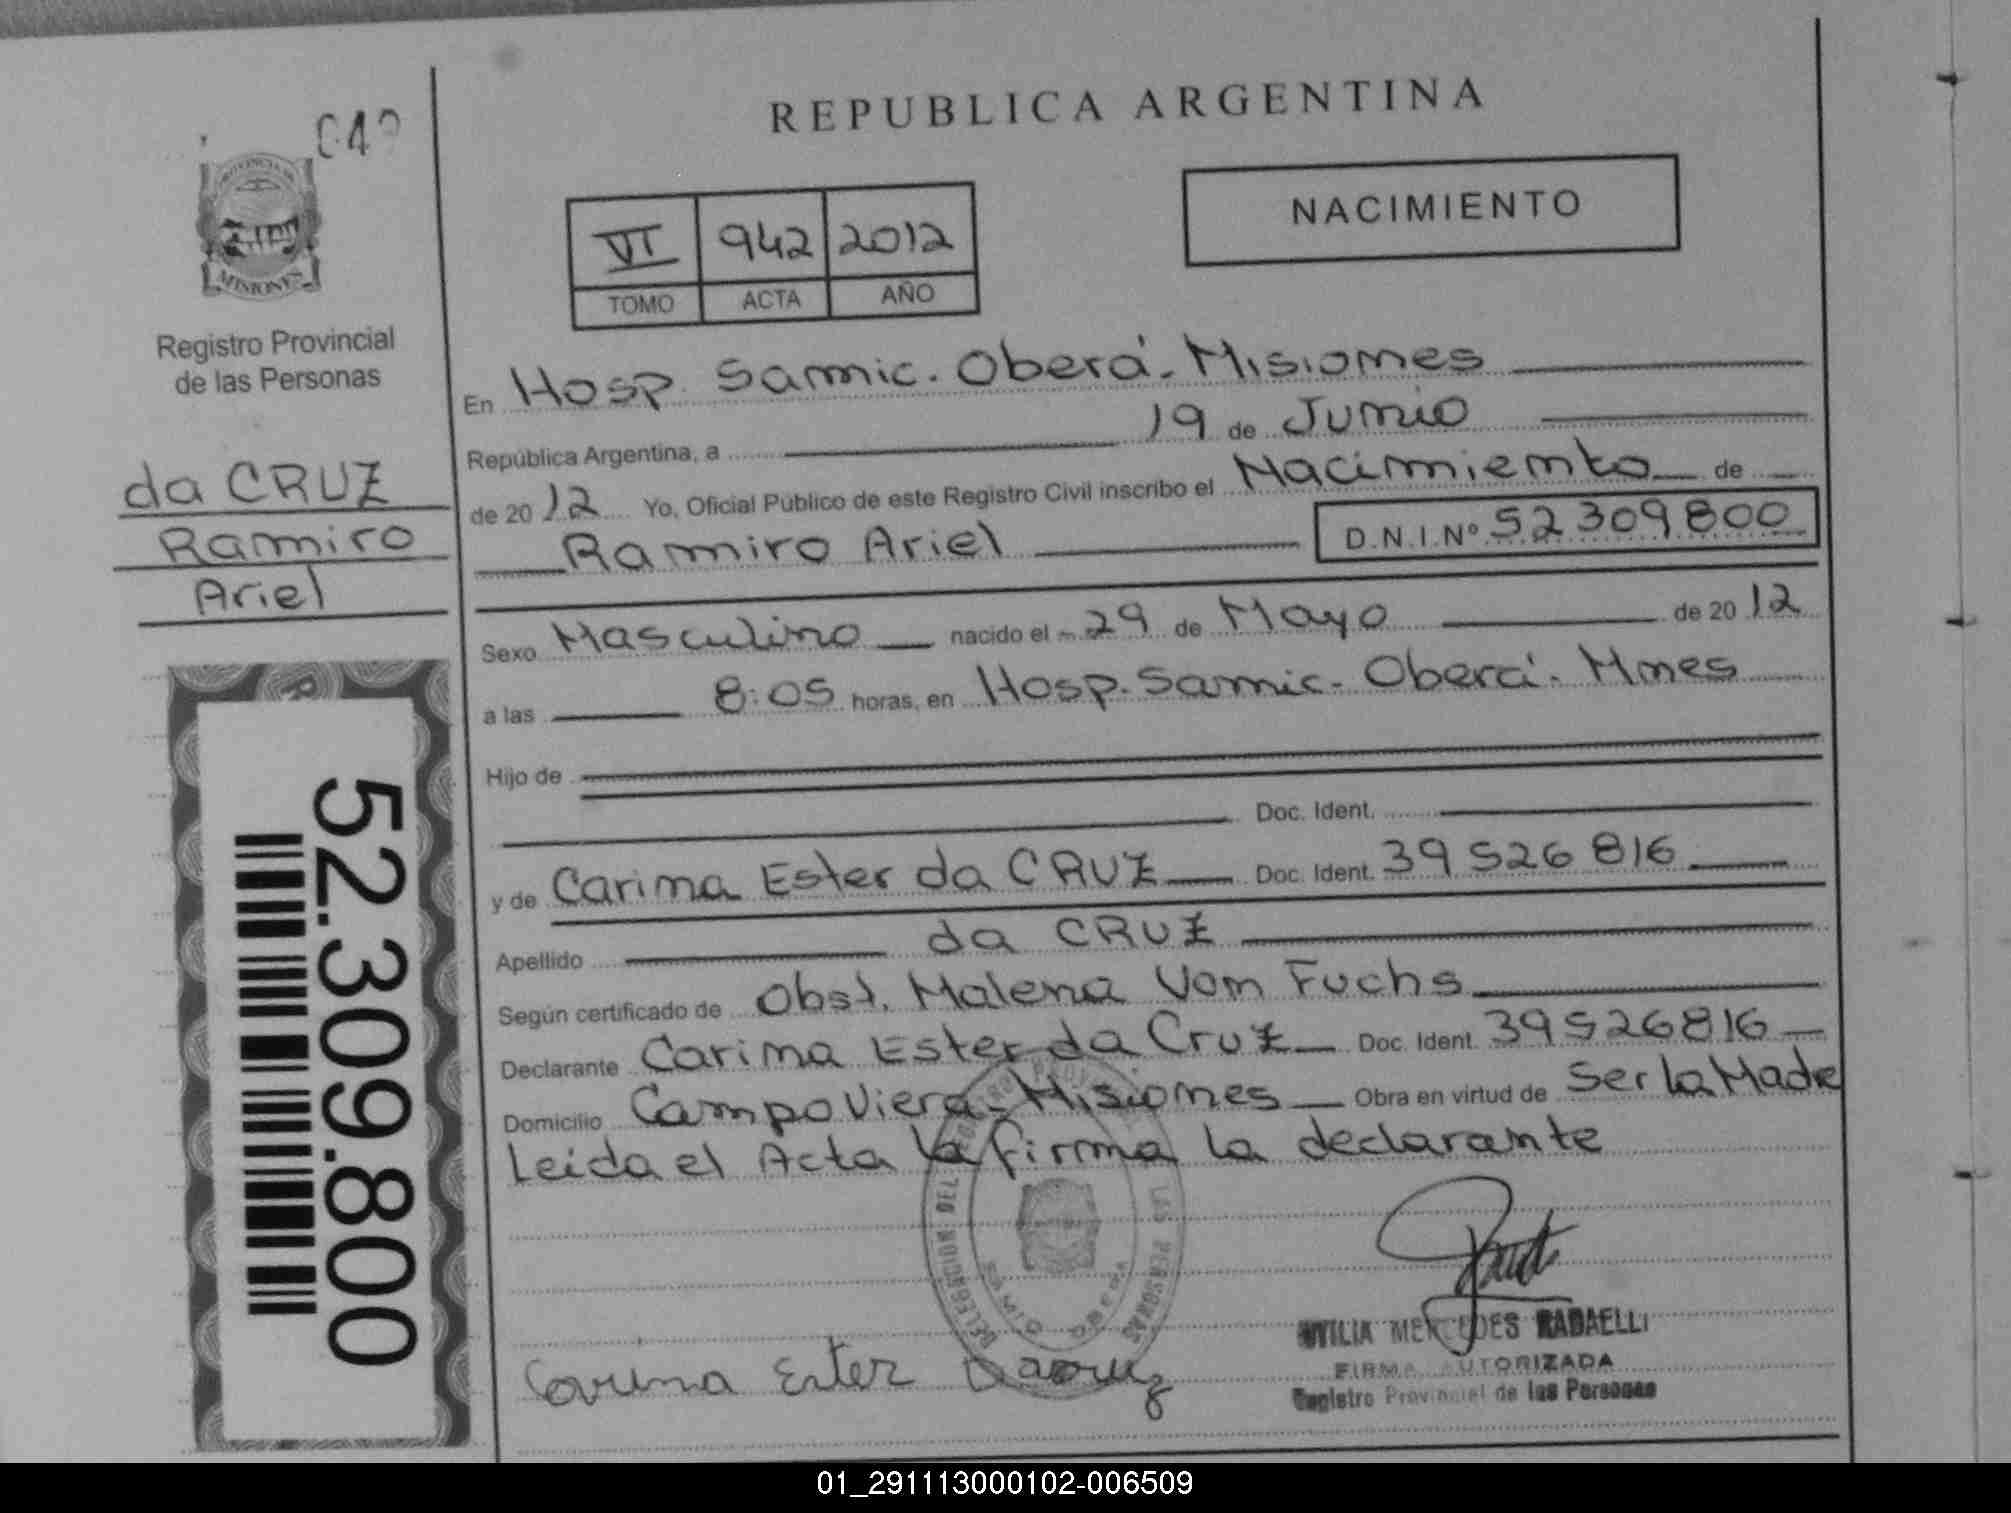 REPUBLICA ARGENTINA
PROVINCIA DE
MISIONES
Registro Provincial
de las Personas
da CRUZ
Ramiro
Ariel
52.309.800
NACIMIENTO
VI 942 2012
TOMO ACTA AÑO
En Hosp. Samic. Oberá. Misiones
República Argentina, a 19 de Junio
de 2012 Yo, Oficial Público de este Registro Civil inscribo el Nacimiento de
Ramiro Ariel D.N.I.Nº 52309800
Sexo Masculino nacido el 29 de Mayo de 2012
a las 8:05 horas, en Hosp. Samic. Oberá. Mnes
Hijo de
Doc. Ident.
y de Carina Ester da CRUZ Doc. Ident. 39526816
Apellido da CRUZ
Según certificado de Obst. Malena Von Fuchs
Declarante Carina Ester da Cruz Doc. Ident. 39526816
Domicilio Campo Viera - Misiones Obra en virtud de Ser la Madre
Leida el Acta la firma la declarante
DELEGACION DEL REGISTRO PROVINCIAL DE LAS PERSONAS
SAMIC OBERA
Carina Ester Dacruz
MERCEDES RADAELLI
FIRMA AUTORIZADA
Registro Provincial de las Personas
01_291113000102-006509